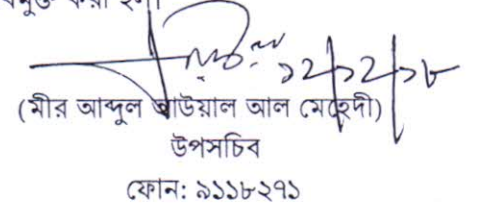 করা হল।
১২/১২/১৮
(মীর আব্দুল আউয়াল আল মেহেদী)
উপসচিব
ফোন: ৯১১৮২৭১